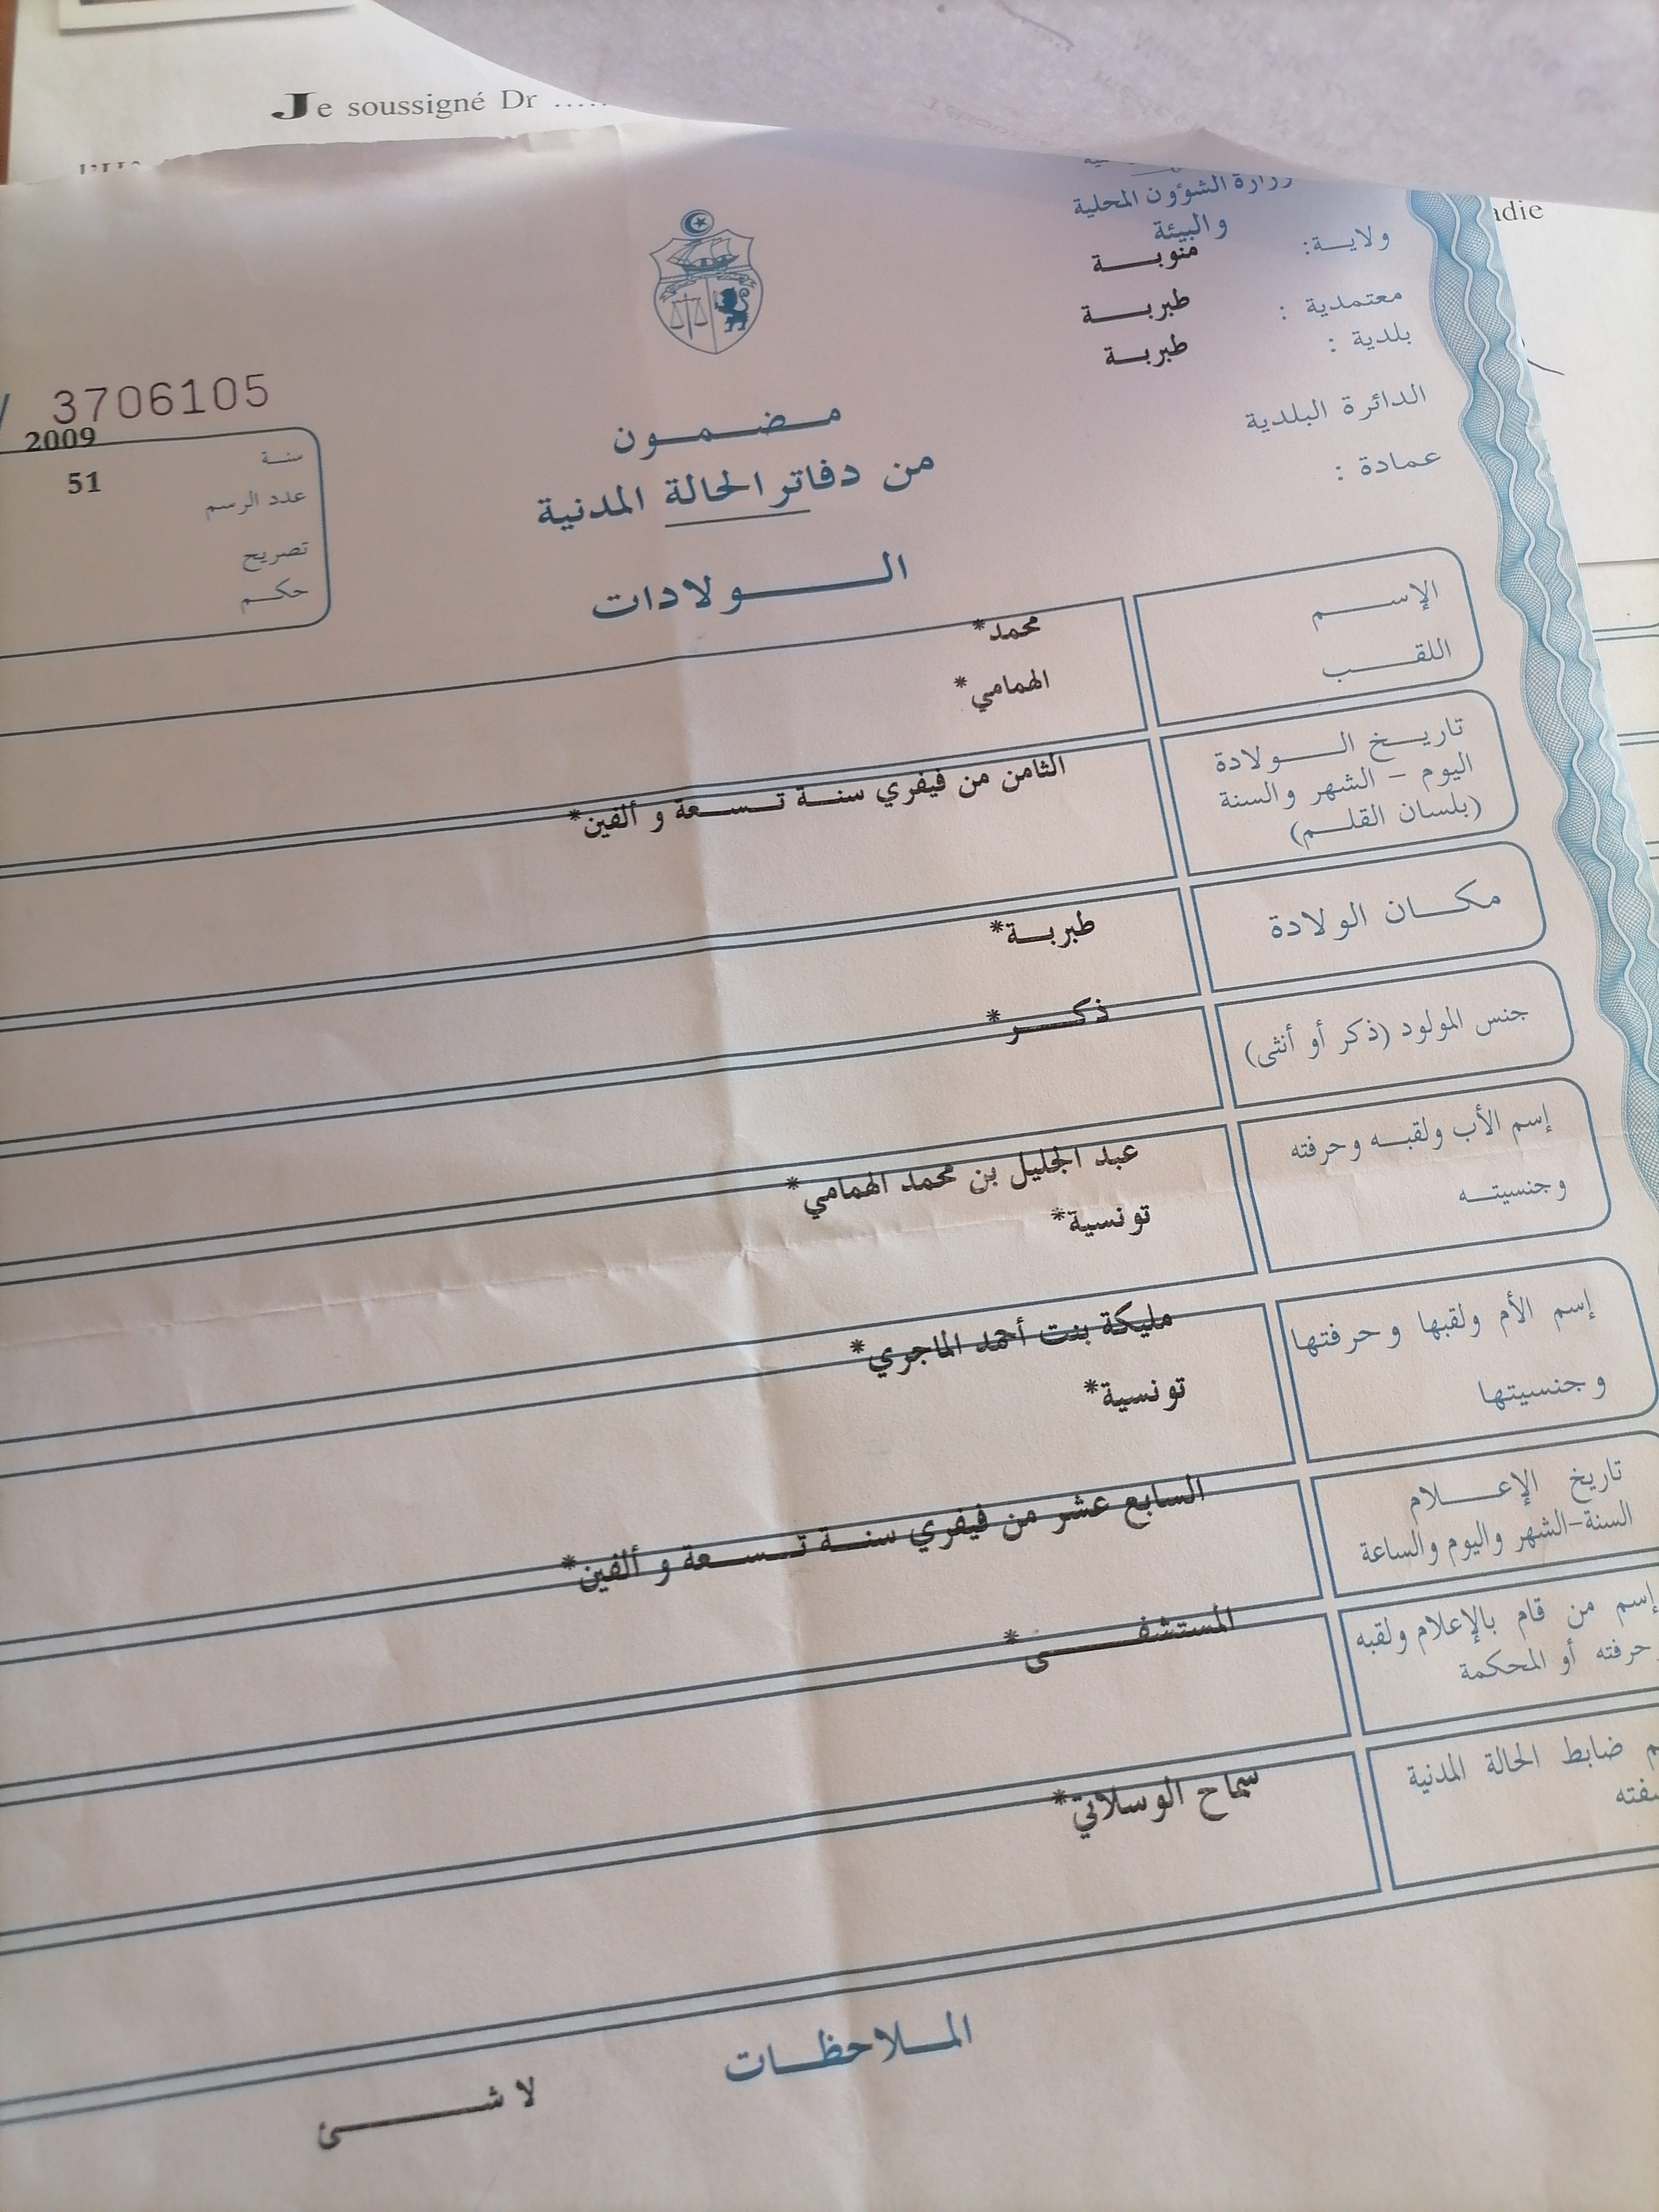 Je soussigné Dr .....
adie
وزارة الشؤون المحلية
والبيئة
ولاية: منوبة
معتمدية : طبربة
بلدية : طبربة
الدائرة البلدية
عمادة :
3706105
2009 سنة
51 عدد الرسم
تصريح
حكم
مضمون
من دفاتر الحالة المدنية
الولادات
الإسم محمد*
اللقب الهمامي*
تاريخ الولادة
اليوم - الشهر والسنة الثامن من فيفري سنة تسعة و ألفين*
(بلسان القلم)
مكان الولادة طبربة*
جنس المولود (ذكر أو أنثى) ذكر*
إسم الأب ولقبه وحرفته عبد الجليل بن محمد الهمامي*
وجنسيته تونسية*
إسم الأم ولقبها وحرفتها مليكة بنت أحمد الماجري*
وجنسيتها تونسية*
تاريخ الإعلام السابع عشر من فيفري سنة تسعة و ألفين*
السنة-الشهر واليوم والساعة
إسم من قام بالإعلام ولقبه المستشفى*
حرفته أو المحكمة
ضابط الحالة المدنية سماح الوسلاتي*
الملاحظات
لا شئ